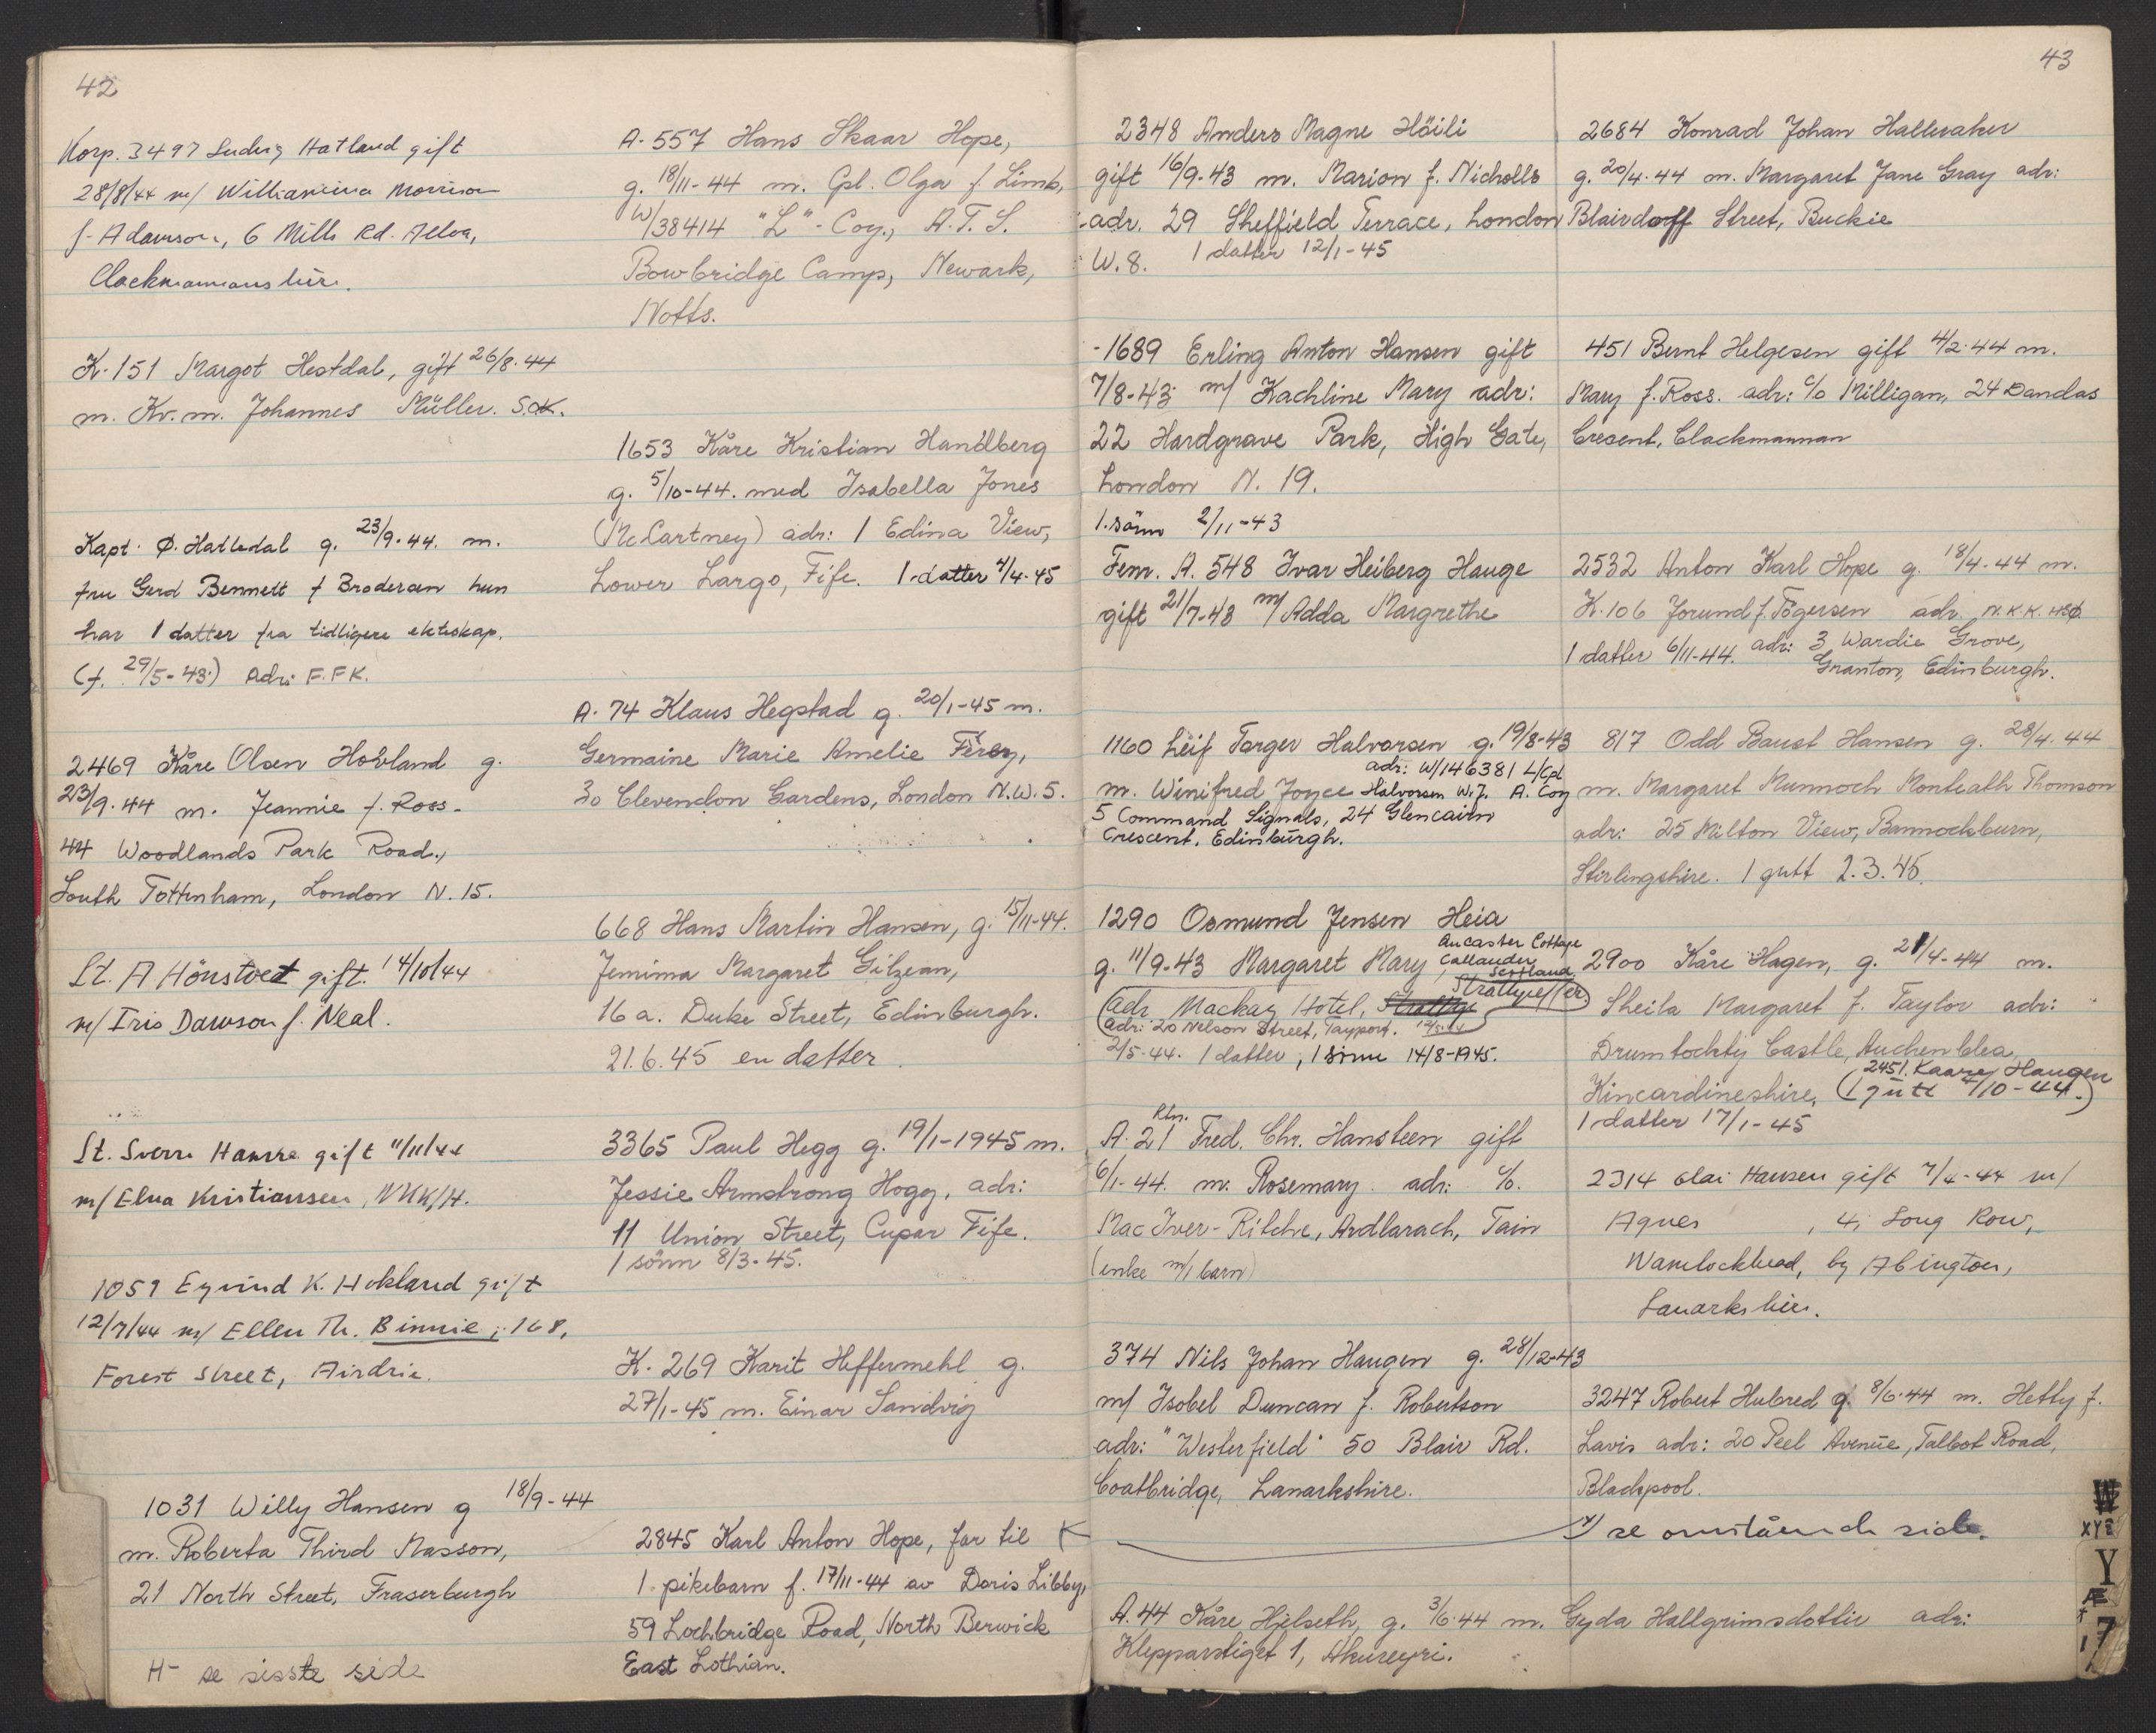 42
Korp. 3497 Ludvig Hatland gift
28/8/44 m/ Williamina Morrison
f. Adamson, 6 Mills Rd. Alloa,
Clackmannanshire.
K. 151 Margot Hestdal, gift 26/8.44
m. Kv. m. Johannes Müller. S.O.K.
Kapt. Ø. Hatledal g. 23/9.44. m.
fru Gerd Bennett f Brodersen hun
har 1 datter fra tidligere ekteskap.
(f. 29/5-43.) Adr: F.F.K.
2469 Kåre Olsen Hovland g.
23/9.44 m. Jeannie f. Ross-
44 Woodlands Park Road.,
South Tottenham, London N.15.
Lt. A Hönstvet gift. 14/10/44
m/ Iris Dawson f. Neal.
Lt. Sverre Hamre gift 11/11/44
m/ Elna Kristiansen, NKK/H.
1059 Eyvind K. Hokland gift
12/7/44 m/ Ellen Th. Binnie; 168,
Forest Street, Airdrie.
1031 Willy Hansen g 18/9-44
m. Roberta Third Masson,
21 North Street, Fraserburgh
H- se sisste side
A. 557 Hans Skaar Hope,
g. 18/11-44 m. Cpl. Olga f. Limb,
W/38414 "L"-Coy., A.T.S.
Bowbridge Camp, Newark,
Notts.
1653 Kåre Kristian Handberg
g. 5/10-44. med Isabella Jones
(McCartney) adr: 1 Edina View,
Lower Largo, Fife. 1 datter 4/4-45
A. 74 Klaus Hegstad g. 20/1-45 m.
Germaine Marie Amelie
30 Clevendon Gardens, London N.W.5.
668 Hans Martin Hansen, g. 15/11-44.
Jemima Margaret Gilzean,
16 a. Duke Street, Edinburgh.
21.6.45 en datter.
3365 Paul Hegg g. 19/1-1945 m.
Jessie Armstrong Hogg, adr:
11 Union Street, Cupar Fife.
1 sönn 8/3-45.
K. 269 Karit Heffermehl g.
27/1-45 m. Einar Sandvig
2845 Karl Anton Hope, far til
1 pikebarn f. 17/11-44 av Doris Libby,
59 Lochbridge Road, North Berwick
East Lothian.
43
2348 Anders Magne Höili
gift 16/9-43 m. Marion f. Nicholls
adr. 29 Sheffield Terrace, London
W.8. 1 datter 12/1-45
-1689 Erling Anton Hansen gift
7/8-43 m/ Kachline Mary adr:
22 Hardgrave Park, High Gate,
London N. 19.
1. sönn 2/11-43
Fenr. A. 548 Ivar Heiberg Hauge
gift 21/7-43 m/ Adda Margrethe
1160 Leif Torger Halvorsen g. 19/8-43
adr: W/146381 L/Cpl
m. Winifred Joyce Halvorsen W.J. A. Coy
5 Command Signals, 24 Glencairn
Crescent, Edinburgh.
1290 Osmund Jensen Heia
Ancaster Cottage
g. 11/9-43 Margaret Mary, Callander
Scotland
Strathpeffer.
(adr Mackay Hotel,
adr: 20 Nelson Street, Tayport.
2/5-44. 1 datter, 1 sönn 14/8-1945.
Rtm.
A. 21 Fred. Chr. Hansteen gift
6/1-44. m. Rosemary. adr: c/o.
Mac Iver-Ritchie, Ardlarach, Tain
(enke m/1 barn)
374 Nils Johan Haugen g. 28/12-43
m/ Isobel Duncan f. Robertson
adr: "Westerfield" 50 Blair Rd.
Coatbridge, Lanarkshire.
A. 44 Kåre Hjelseth, g. 3/6-44 m. Gyda Hallgrimsdottir adr:
Klepparstiget 1, Akureyri.
2684 Konrad Johan Hallvaker
g. 20/4-44 m. Margaret Jane Gray adr:
Blairdaff Street, Buckie
451 Bernt Helgesen gift 4/2-44 m.
Mary f. Ross. adr: c/o Milligan, 24 Dandas
Crecent, Clackmannan
2532 Anton Karl Hope g. 18/4-44 m.
K. 106 Jorund f. Tögersen adr. N.K.K. HSØ
1 datter 6/11-44. adr: 3 Wardie Grove,
Granton, Edinburgh.
817 Odd Baust Hansen g. 28/4-44
m. Margaret Munnoch Monteath Thomson
adr: 25 Milton View, Bannockburn,
Stirlingshire. 1 gutt 2.3.45.
2900 Kåre Hagen, g. 21/4-44 m.
Sheila Margaret f. Taylor adr:
Drumtochty Castle, Auchenblea,
2451. Kaare Haugen
Kincardineshire, (1 gutt 4/10-44.)
1 datter 17/1-45
2314 Olai Hansen gift 7/4-44 m/
Agnes , 4, Long Row,
Wanlockhead, by Abington,
Lanarkshire.
3247 Robert Hubred g. 8/6-44 m. Hetty f.
Lavis adr: 20 Peel Avenue, Talbot Road,
Blackpool.
x) se omstående side.
W
XYZ
Y
Æ
7